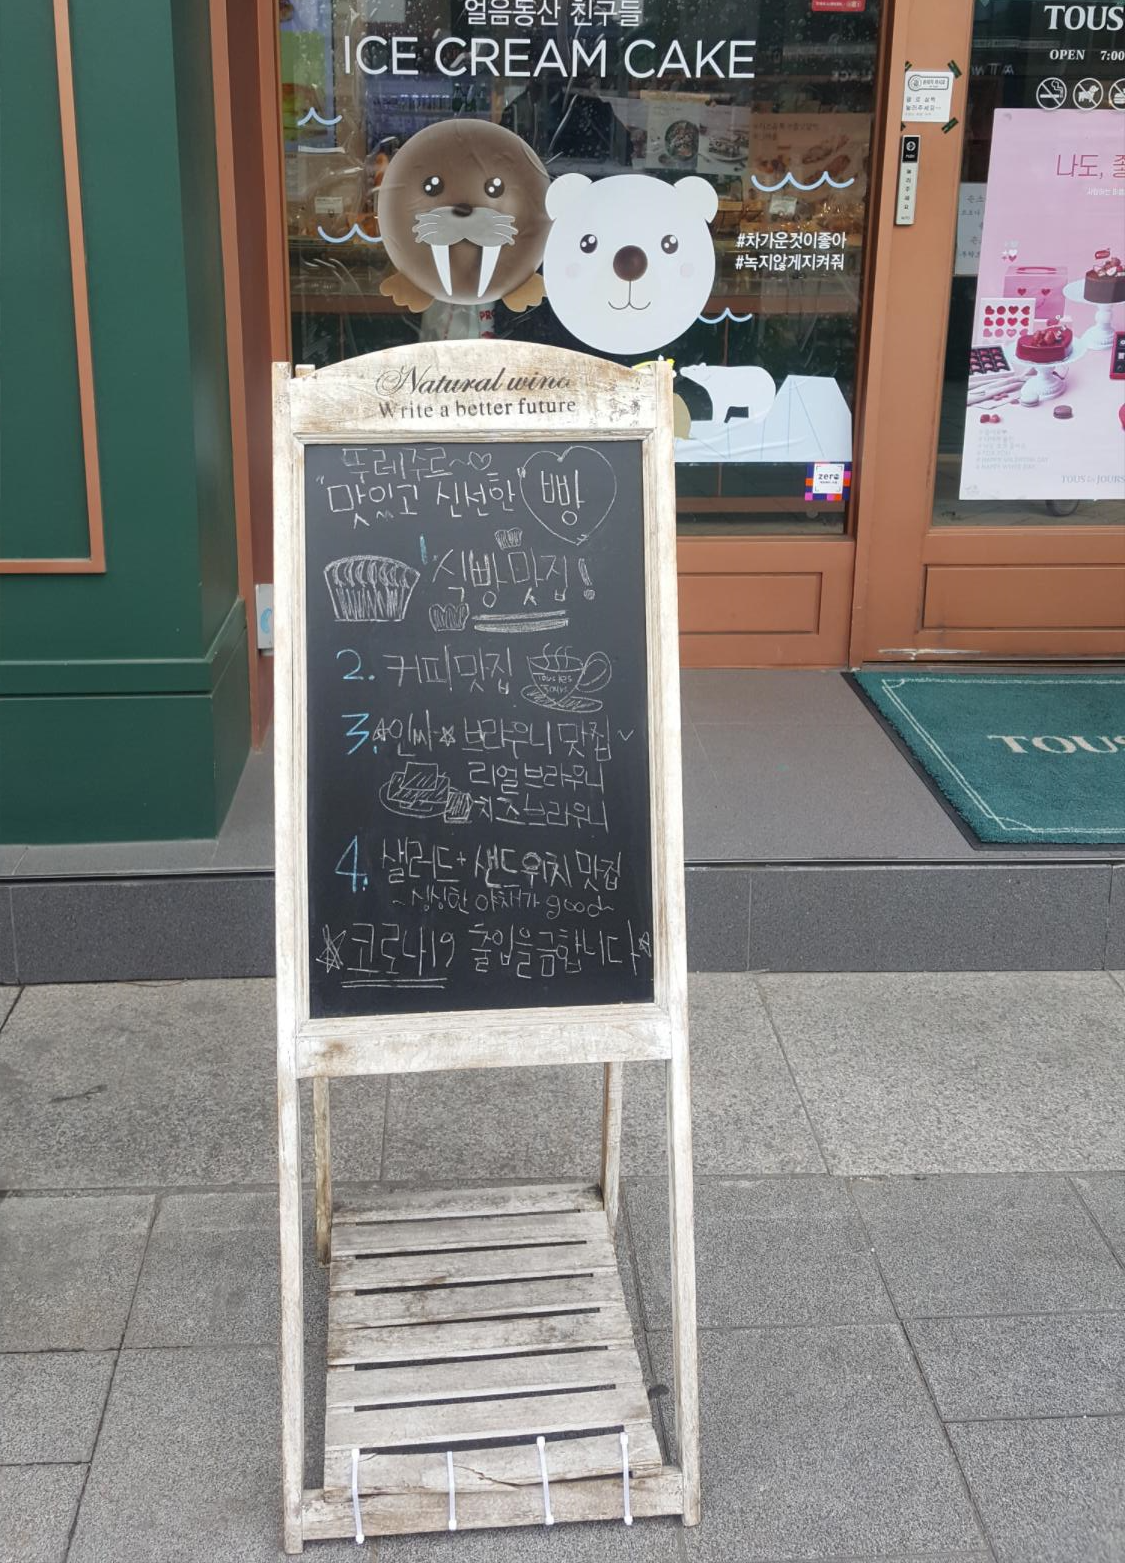 얼음동산 친구들
ICE CREAM CAKE
#차가운것이좋아
#녹지않게지켜줘
TOUS
OPEN 7:00
나도,
TOUS les JOURS
zero
Natural wind
Write a better future
뚜레쥬르~♡
"맛있고 신선한" 빵
1. 식빵 맛집!
2. 커피맛집
TOUS les JOURS
3. ☆인싸☆ 브라우니 맛집
리얼브라우니
치즈브라우니
4. 샐러드 + 샌드위치 맛집
~싱싱한 야채가 good~
☆코로나19 출입을금합니다☆
TOUS